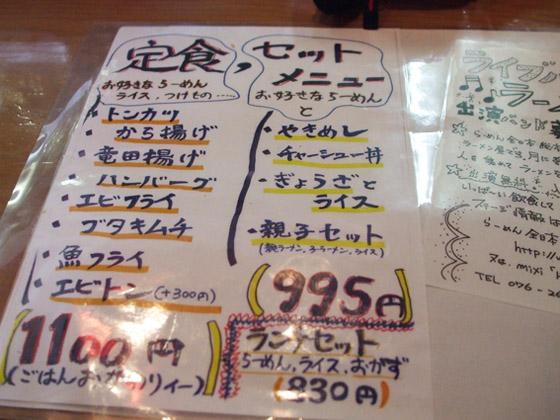 定食,
お好きならーめん
ライス、つけもの.....
・トンカツ
・から揚げ
・竜田揚げ
・ハンバーグ
・エビフライ
・ブタキムチ
・魚フライ
・エビトン(+300円)
1100円
(ごはんおかわりィー)
セット
メニュー
お好きならーめん
と
・やきめし
・チャーシュー丼
・ぎょうざと
ライス
・親子セット
(親ラーメン、子ラーメン、ライス)
(995円
ランチセット
らーめん、ライス、おかず
(830円)
ライブ
ラー
出演バンド募
ラーメン屋
出演無料
いっぱい飲食して
らーめん 全日本
http://
又は、mixi
TEL 076-26